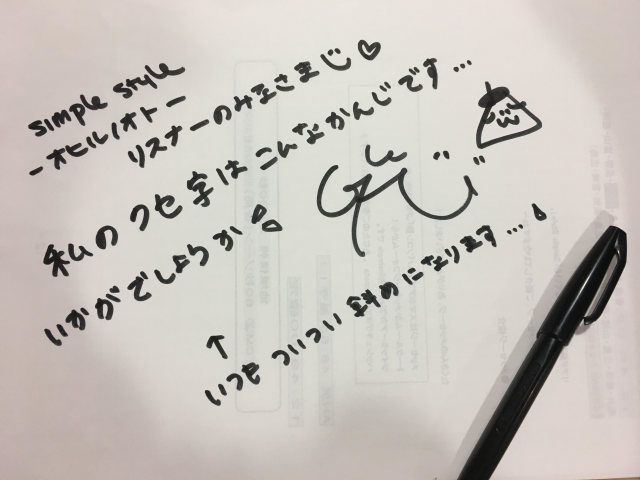 simple style
-オヒルノオト-
リスナーのみなさまじ♡
私のクセ字はこんなかんじです…
いかがでしょうか
↑
いつもついつい斜めになります…